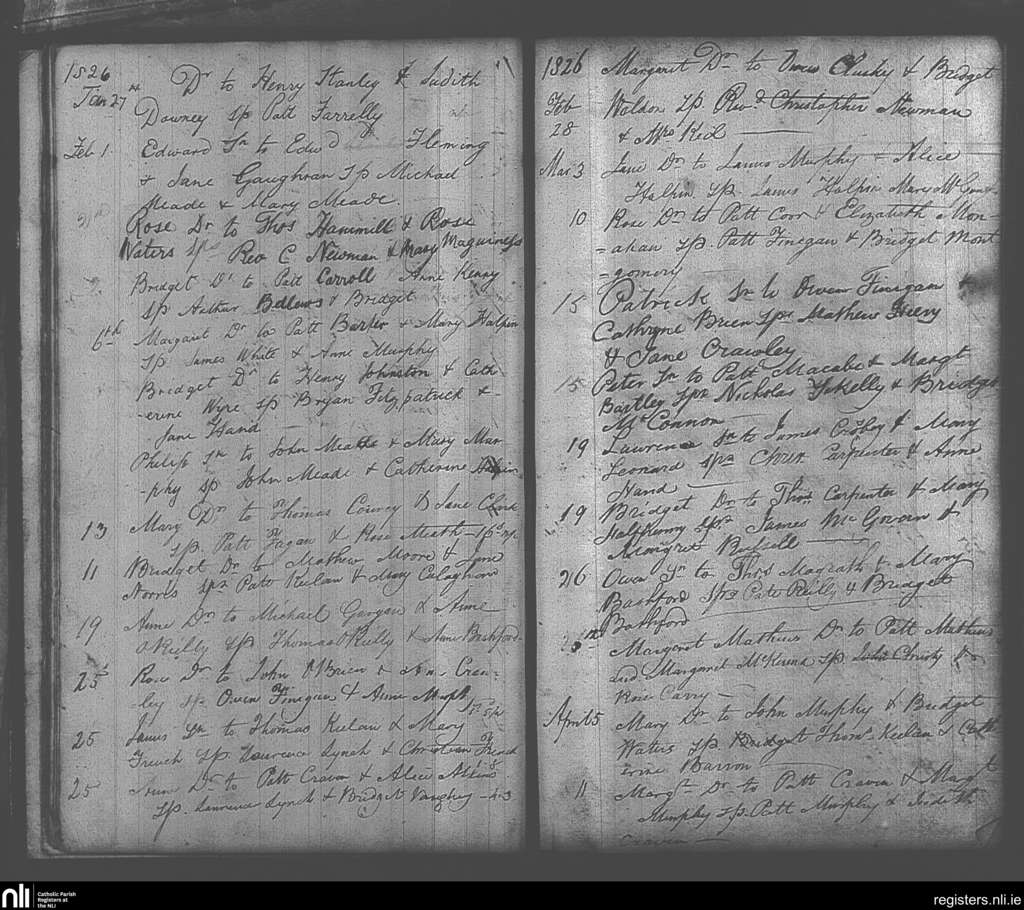 1826
Jan 27 Dr to Henry Stanley & Judith
Downey Sp Patt Farrelly
Feb 1 Edward Sn to Edwd Fleming
& Jane Gaughran Sp Michael
Meade & Mary Meade.
Rose Dr to Thos Hammill & Rose
Waters Sps Rev C Newman & Mary Maguiness
Bridget Dr to Patt Carroll Anne Kenny
Sp Arthur Bellows & Bridget
6th Margaret Dr to Patt Barker & Mary Halpin
Sp. James White & Anne Murphy
Bridget Dr to Henry Johnston & Cath-
-erine Wyre Sp Bryan Fitzpatrick &
Jane Hand
Philip Sn to John Meade & Mary Mur
-phy Sp John Meade & Catherine
13 Mary Dr to Thomas Conroy & Jane
Sp. Patt Fagan & Rose Meath
11 Bridget Dr to Mathew Moore & Jane
Norris Sps Patt Keelan & Mary Calaghan
19 Anne Dr to Michael Gargan & Anne
O'Reilly Sp Thomas O'Reilly & Anne Bashford
25 Rose Dr to John O'Brien & Ann Craw-
ley Sps Owen Finegan & Anne Murphy
25 James Sn to Thomas Keelan & Mary
French Sp. Laurence Lynch & Christian French
25 Dr to Patt Craven & Alice
Sp. Laurence Lynch & Bridget Vaughey
1826 Margaret Dr to Owen Clusky & Bridget
Feb 28 Waldon Sp. Revd Christopher Newman
& Mrs Keel
Mar 3 Jane Dr to James Murphy & Alice
Halpin Sp. James Halpin Mary
10 Rose Dr to Patt Coor & Elizabeth Mon-
=ahan Sp Patt Finegan & Bridget Mont
=gomery
15 Patrick Sn to Owen Finigan &
Cathrine Brien Sps Mathew Heery
& Jane Crawley
15 Peter Sn to Patt Macabe & Margt
Bartley Sps Nicholas & Bridget
McConnon
19 Laurence Sn to James & Mary
Leonard Sps Chrisr Carpenter & Anne
Hand
19 Bridget Dr to Thos Carpenter & Mary
Halfpenny Sps James McGovern &
Margret Russell
26 Owen Sn to Thos Magrath & Mary
Bashford Sps Patt Reilly & Bridget
Bashford
Margaret Mathews Dr to Patt Mathews
and Margaret McKenna Sp John Christy &
Rose Carry
April 5 Mary Dr to John Murphy & Bridget
Waters Sp. Thoms Keelan & Cath
erine Barron
11 Margt Dr to Patt Craven & Margt
Murphy Sp. Patt Murphy & Judith
Craven
nli Catholic Parish
Registers at
the NLI
registers.nli.ie